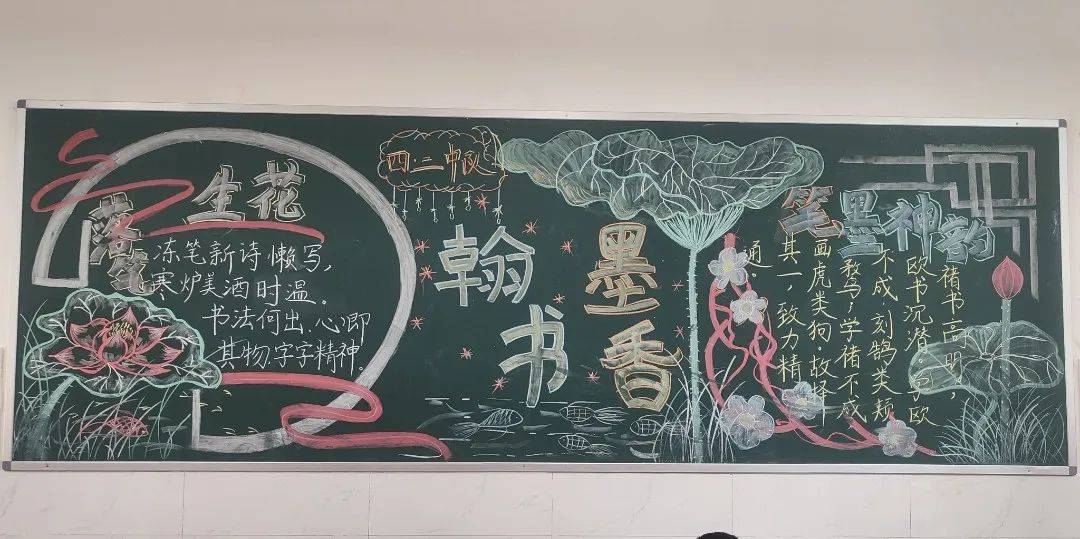 落笔生花
冻笔新诗懒写,
寒炉美酒时温.
书法何出、心即
其物,字字精神.
四.二中队
翰墨
书香
笔墨神韵
褚书高明,
欧书沉潜,欧
不成刻鹄类
学褚不成
画虎类狗.故择
其一,致力精
通.